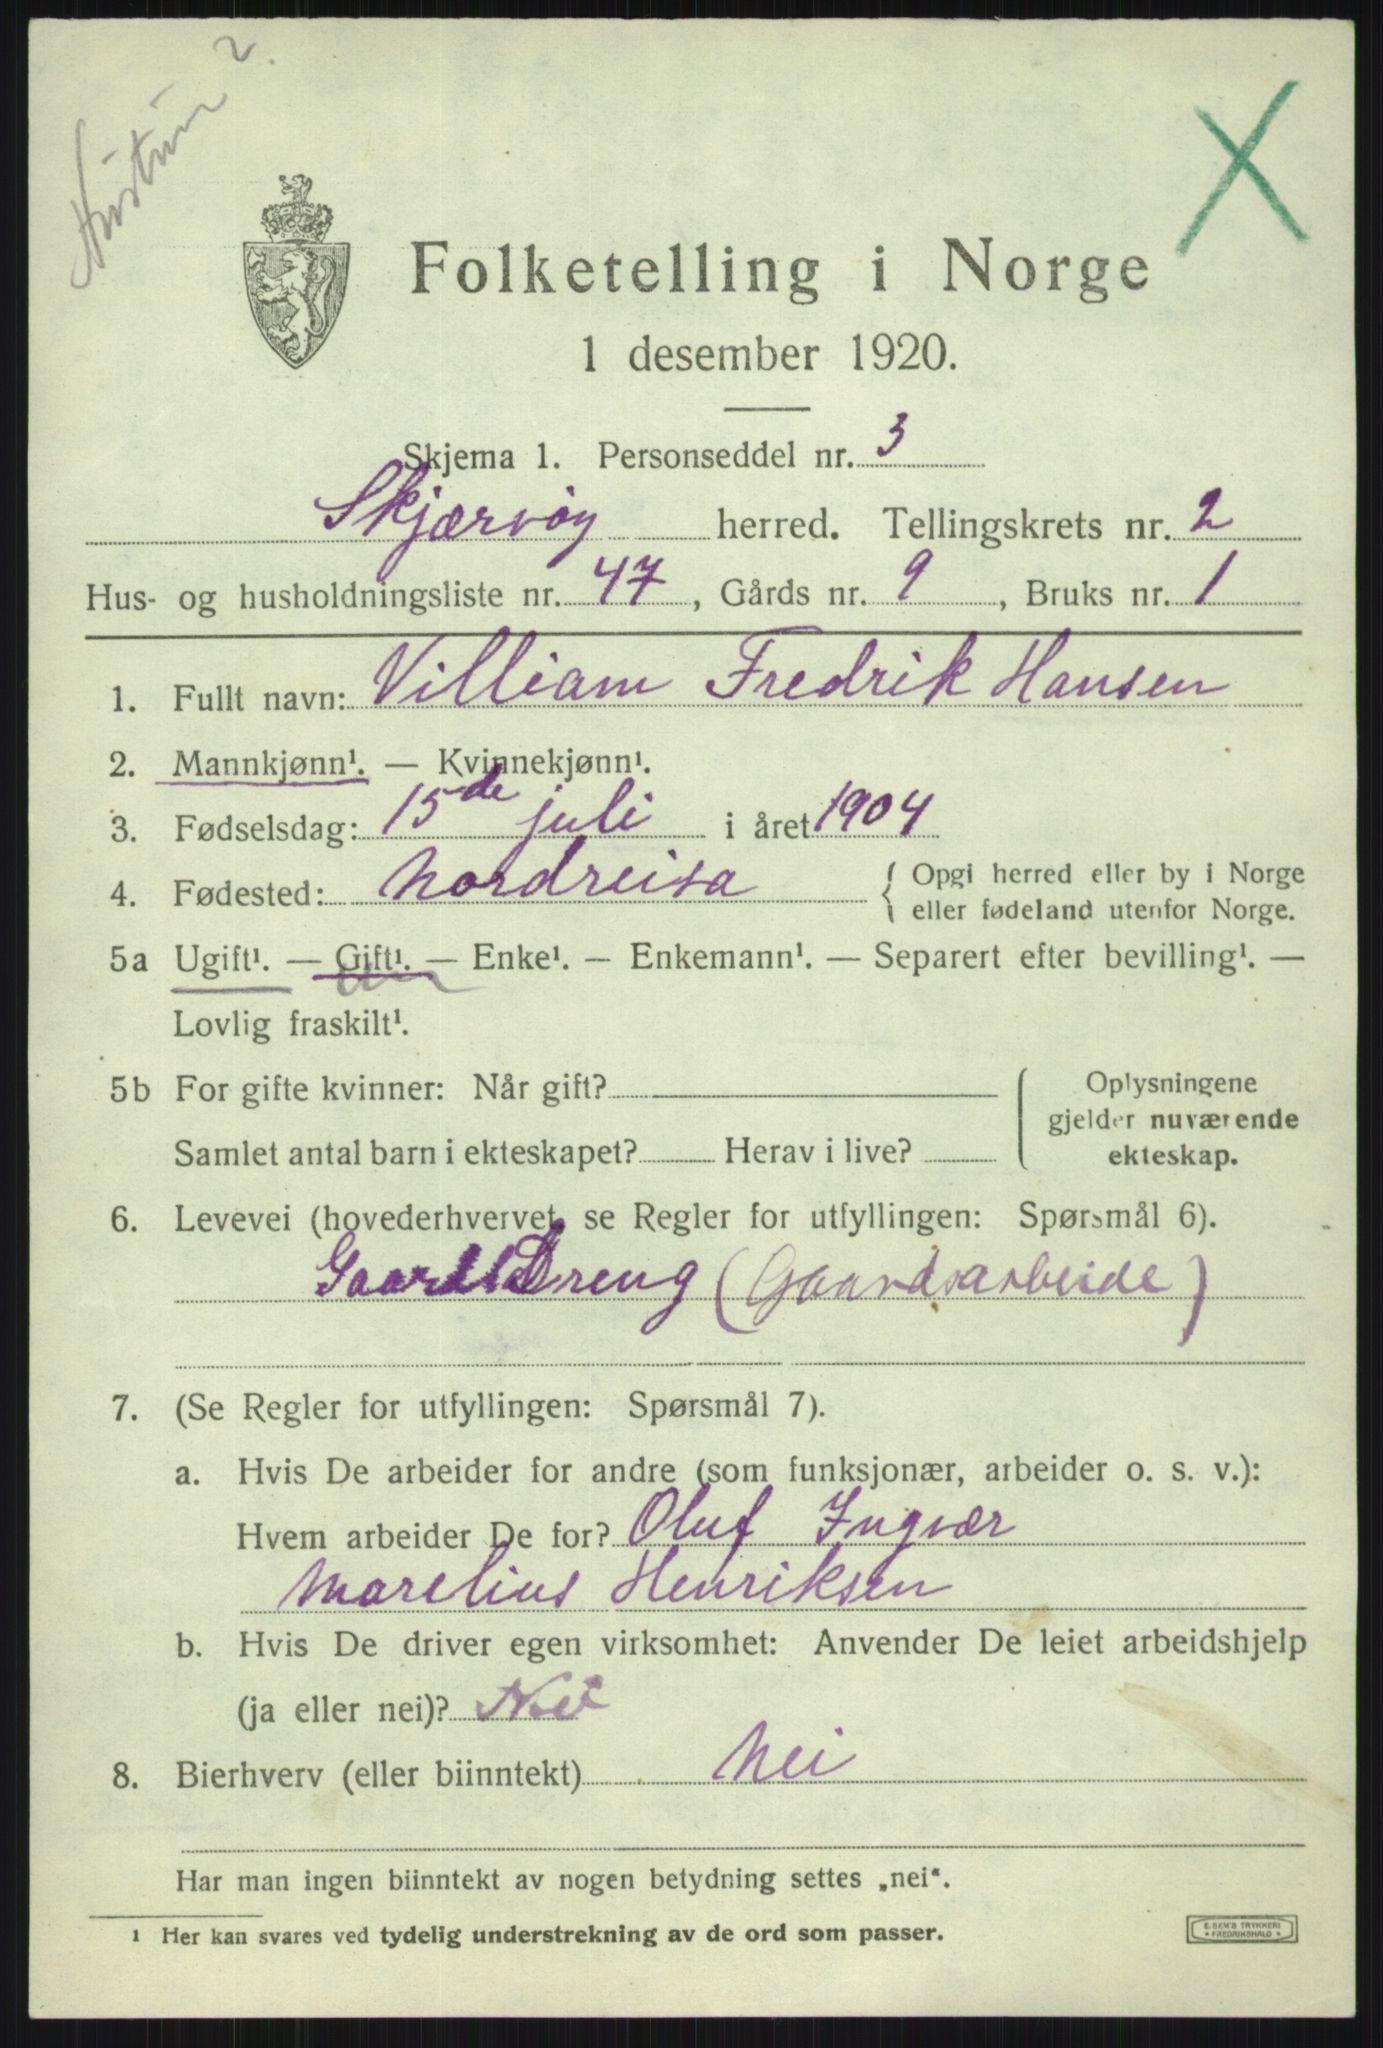 2.
Folketelling i Norge
1 desember 1920.
Skjema 1. Personseddel nr. 3
Skjærvöy herred. Tellingskrets nr. 2
Hus- og husholdningsliste nr. 47, Gårds nr. 9, Bruks nr. 1
1. Fullt navn: Villiam Fredrik Hansen
2. Mannkjønn¹. — Kvinnekjønn¹.
3. Fødselsdag: 15de juli i året 1904
4. Fødested: Nordreisa { Opgi herred eller by i Norge
eller fødeland utenfor Norge.
5a Ugift¹. — Gift¹. — Enke¹. — Enkemann¹. — Separert efter bevilling¹. —
Lovlig fraskilt¹.
5b For gifte kvinner: Når gift?
Samlet antal barn i ekteskapet? Herav i live?
Oplysningene
gjelder nuværende
ekteskap.
6. Levevei (hovederhvervet, se Regler for utfyllingen: Spørsmål 6).
Dreng (Gaardsarbeide)
7. (Se Regler for utfyllingen: Spørsmål 7).
a. Hvis De arbeider for andre (som funksjonær, arbeider o. s. v.):
Hvem arbeider De for? Oluf Ingvær
Marelius Henriksen
b. Hvis De driver egen virksomhet: Anvender De leiet arbeidshjelp
(ja eller nei)? Nei
8. Bierhverv (eller biinntekt) Nei
Har man ingen biinntekt av nogen betydning settes „nei“.
¹ Her kan svares ved tydelig understrekning av de ord som passer.
E. SEM'S TRYKKERI
* FREDRIKSHALD *